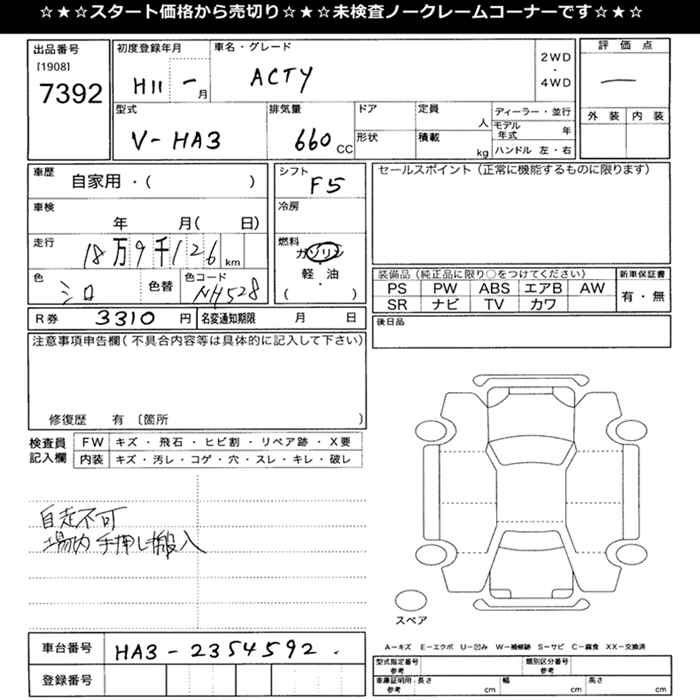 ☆★☆★スタート価格から売切り☆★☆★未検査ノークレームコーナーです☆★☆
出品番号
[1908]
7392
初度登録年月
H11 - 月
車名・グレード
ACTY
2WD
・
4WD
評価点
―
外装 内装
型式
V-HA3
排気量
660 CC
ドア
形状
定員
人
積載
kg
ディーラー・並行
モデル年式 年
ハンドル 左・右
車歴
自家用・( )
車検
年 月( 日)
走行
18万9千126 km
色
シロ
色替
色コード
NH528
シフト
F5
冷房
燃料
ガソリン
軽・油
・
( )
R券 3310 円
名変通知期限 月 日
セールスポイント(正常に機能するものに限ります)
装備品(純正品に限り○をつけてください)
PS PW ABS エアB AW
SR ナビ TV カワ
新車保証書
有・無
後日品
注意事項申告欄(不具合内容等は具体的に記入して下さい)
修復歴 有 〔箇所 〕
検査員
記入欄
FW キズ・飛石・ヒビ割・リペア跡・X要
内装 キズ・汚レ・コゲ・穴・スレ・キレ・破レ
自走不可
場内手押し搬入
スペア
車台番号 HA3-2354592.
登録番号
A-キズ E-エクボ U-凹み W-補修跡 S-サビ C-腐食 XX-交換済
型式指定番号
参考
類別区分番号
参考
車庫証明用
参考
長さ cm 幅 cm 高さ cm